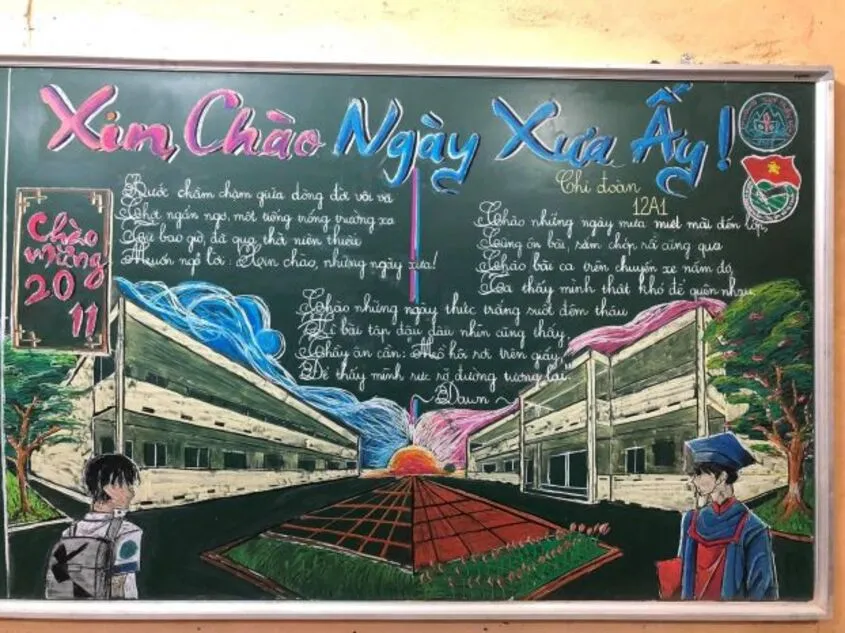 Xin Chào Ngày Xưa Ấy!
Chi đoàn
12A1
Chào
mừng
20
11
Bước chầm chậm giữa dòng đời vội vã
Chợt ngẩn ngơ, một tiếng trống trường xa
Từ bao giờ, đã qua, thời niên thiếu
Muốn ngỏ lời: Xin chào, những ngày xưa!
Chào những ngày mưa miệt mài đến lớp,
Cùng ôn bài, sấm chớp rã cùng qua
Chào bài ca trên chuyến xe năm đó,
Ta thấy mình thật khó để quên nhau
Chào những ngày thức trắng suốt đêm thâu
Vì bài tập đâu đâu nhìn cũng thấy
Thầy ân cần: "Mồ hôi rơi trên giấy,
Để thấy mình rực rỡ đường tương lai."
~ Dawn ~